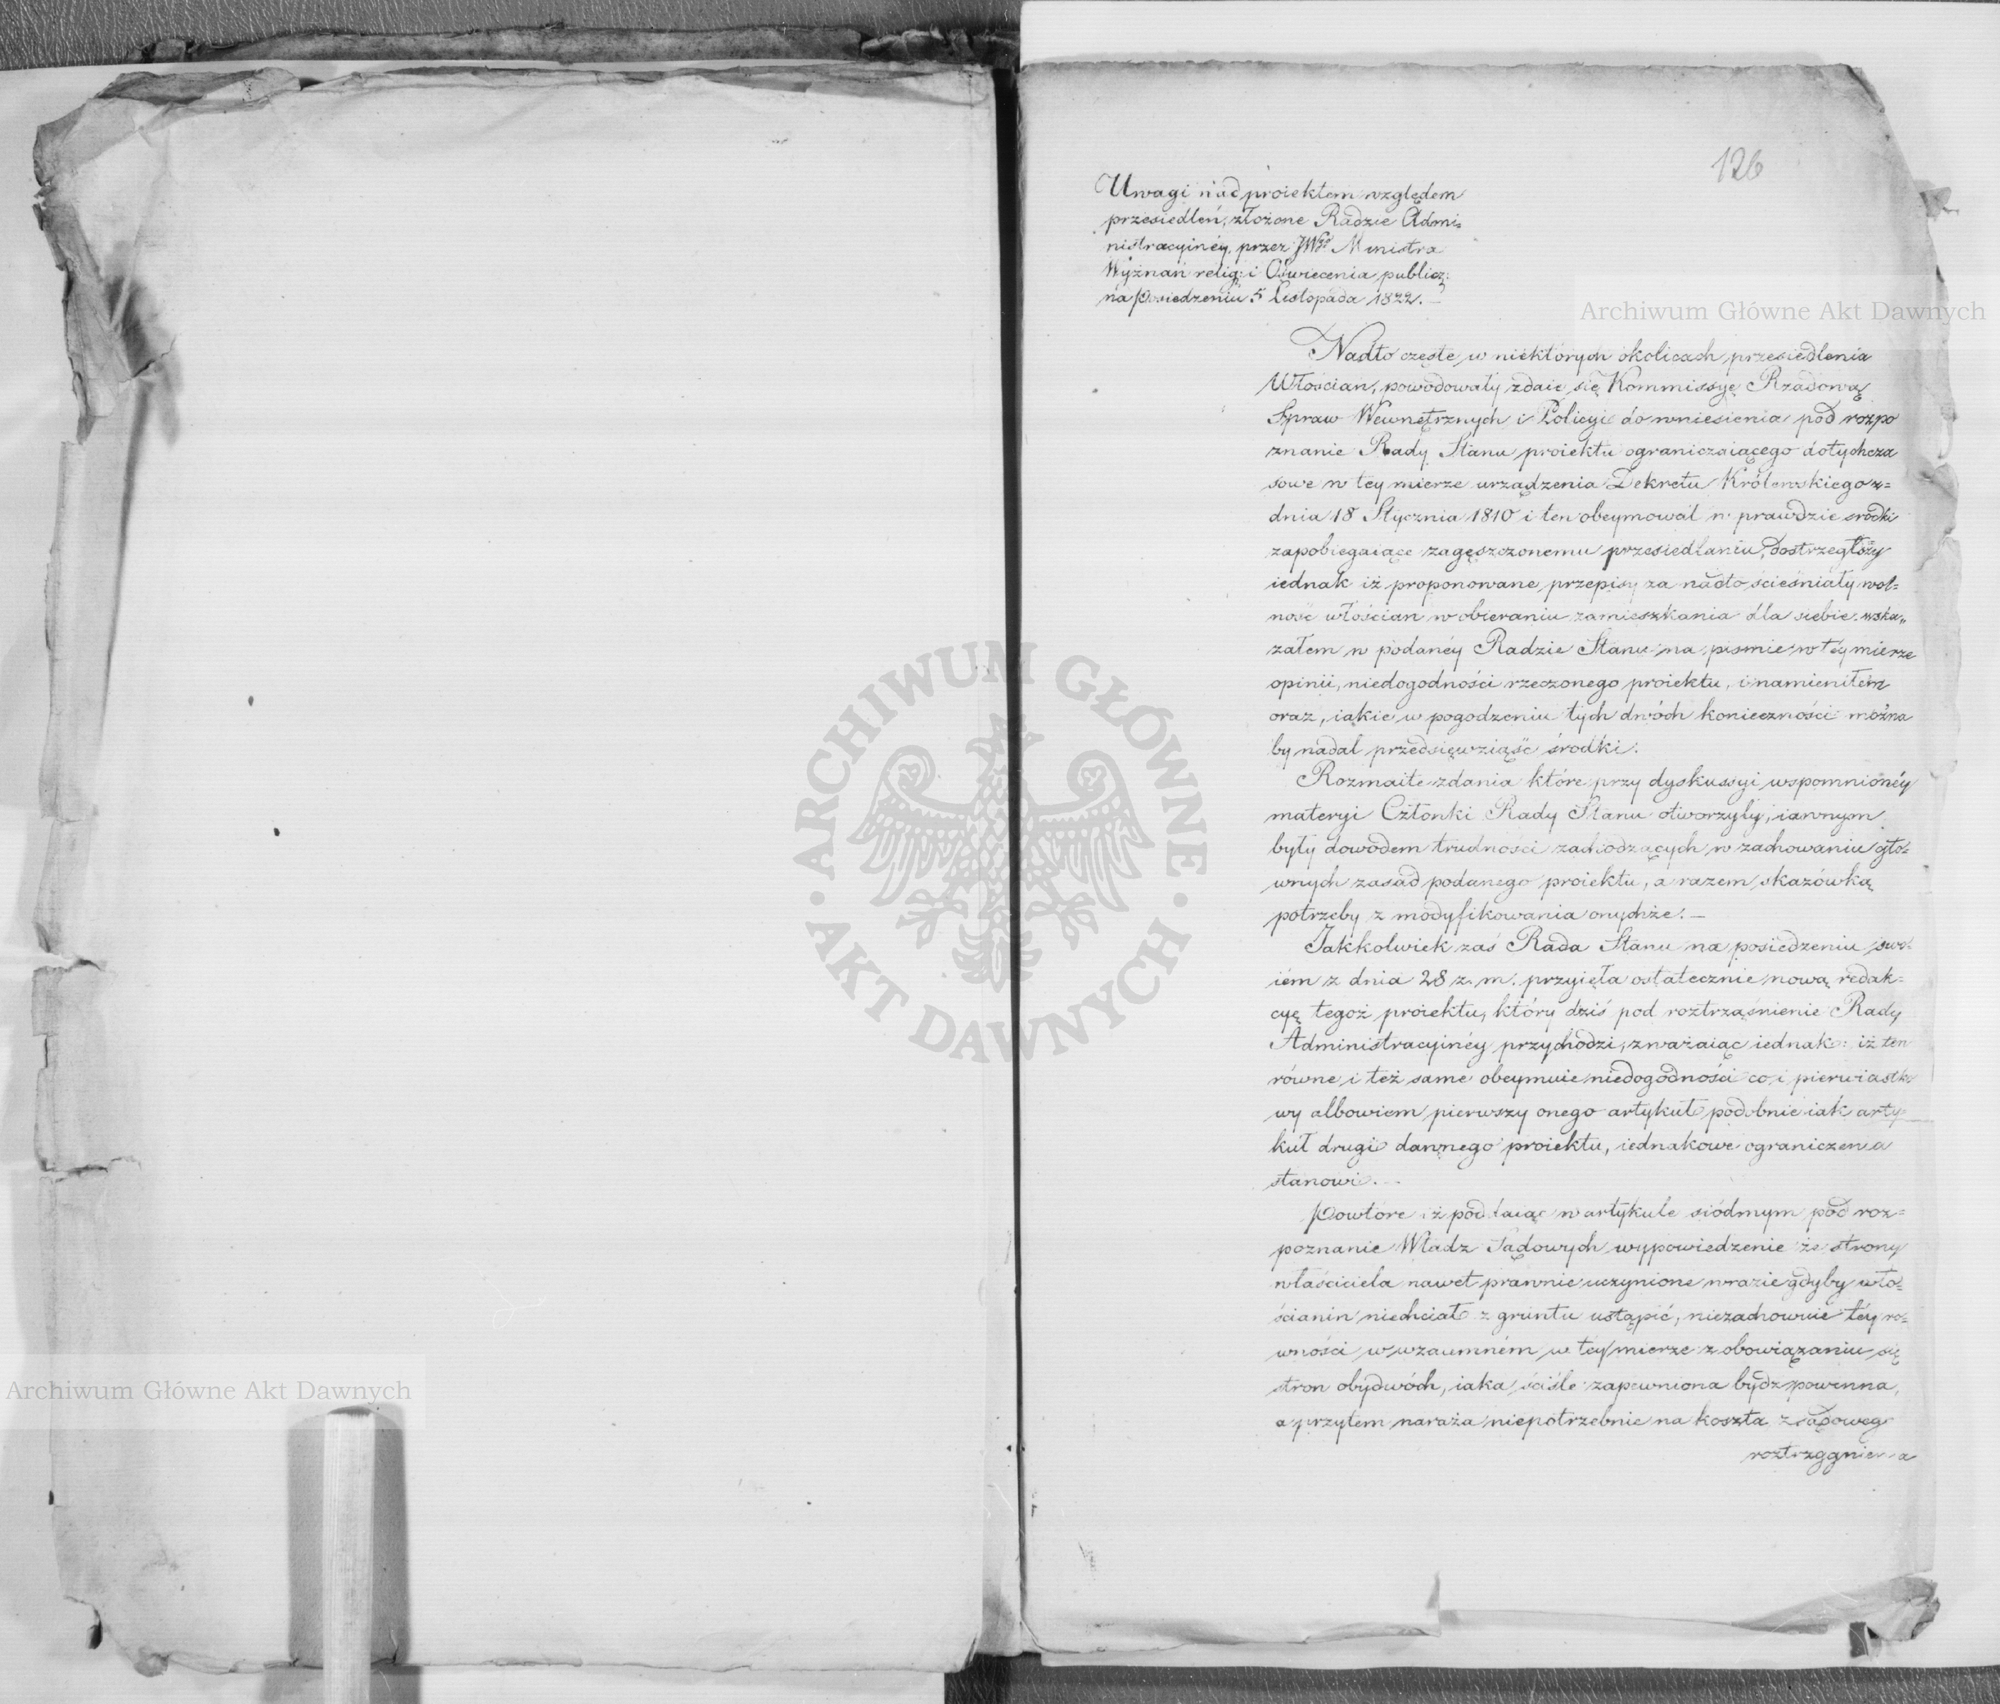 126
Uwagi nad proiektem względem
przesiedleń, złożone Radzie Admi,
nistracyinéy, przez JWgo Ministra
Wyznań relig: i Oświecenia publicz:
na posiedzeniu 5 Listopada 1822. —
Archiwum Główne Akt Dawnych
Nadto częste w niektórych okolicach przesiedlenia
Włościan, powodowały zdaie się Kommissyę Rządową
Spraw Wewnętrznych i Policyi do wniesienia pod rozpo
znanie Rady Stanu proiektu ograniczaiącego dotychcza
sowe w tey mierze urządzenia Dekretu Królewskiego z=
dnia 18 Stycznia 1810 i ten obeymował w prawdzie srodki
zapobiegaiące zagęszczonemu przesiedlaniu, dostrzegłszy
iednak iż proponowane przepisy za nadto ścieśniały wol=
ność włościan w obieraniu zamieszkania dla siebie, wska„
załem w podanéy Radzie Stanu na pismie w téy mierze
opinii, niedogodności rzeczonego proiektu, i namieniłem
oraz, iakie w pogodzeniu tych dwóch konieczności można
by nadal przedsięwziąść środki.
Rozmaite zdania które przy dyskussyi wspomnionéy
materyi Członki Rady Stanu otworzyły, iawnym
były dowodem trudności zachodzących w zachowaniu głó=
wnych zasad podanego proiektu, a razem skazówką
potrzeby z modyfikowania onychże. —
Jakkolwiek zaś Rada Stanu na posiedzeniu swo=
iém z dnia 28 z. m. przyięła ostatecznie nową redak=
cyę tegoż proiektu, który dziś pod roztrząśnienie Rady
Administracyinéy przychodzi, zważaiąc iednak: iż ten
równe i też same obeymuie niedogodności co i pierwiastko
wy albowiem pierwszy onego artykuł podobnie iak arty=
kuł drugi dawnego proiektu, iednakowe ograniczenia
stanowi. —
Powtóre iż poddaiąc w artykule siódmym pod roz=
poznanie Władz Sądowych wypowiedzenie ze strony
właściciela nawet prawnie uczynione w razie gdyby wło=
ścianin niechciał z gruntu ustąpić, niezachowuie téy ró=
wności w wzaiemném w tey mierze zobowiązaniu się
stron obydwóch, iaka ściśle zapewniona bydź powinna,
a przytem naraża niepotrzebnie na koszta z sądoweg
roztrzągnienia
ARCHIWUM GŁÓWNE
AKT DAWNYCH
Archiwum Główne Akt Dawnych